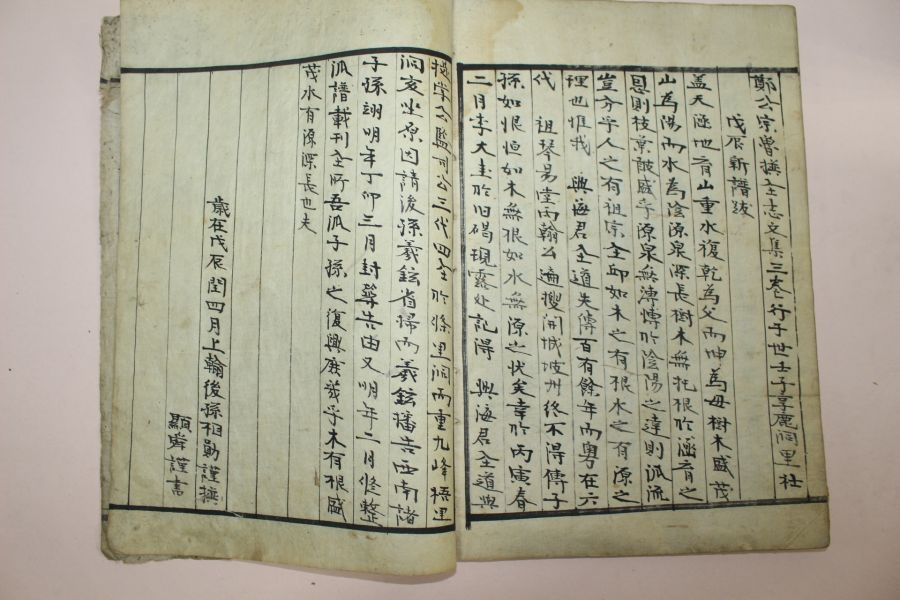 鄭公宗魯撰全志文集三卷行于世壬子享麗洞里社
戊辰新譜跋
盖天涵地育山重水復乾為父而坤為母樹木盛茂
山為陽而水為陰源泉深長樹木無托根於涵育之
恩則枝葉詖盛乎源泉無溥愽於陰陽之達則派流
豈分乎人之有祖宗全卽如木之有根水之有源之
理也惟我 興海君全道失傳百有餘年而粤在六
代 祖琴易堂內翰公遍搜開城坡州終不得傳子
孫如恨恒如木無根如水無源之状矣幸於丙寅春
二月李大圭於旧碣現露处記得 興海君全道與
提学公監司公三代四全於條里洞而重九峰梧里
洞亥坐原因請後孫羲鉉省掃而羲鉉播告西南諸
子孫翊明年丁卯三月封築告由又明年二月修整
派譜載刊全所吾派子孫之復興庶幾乎木有根盛
茂水有源深長也夫
歲在戊辰閏四月上翰後孫相勛謹撰
顯舜謹書